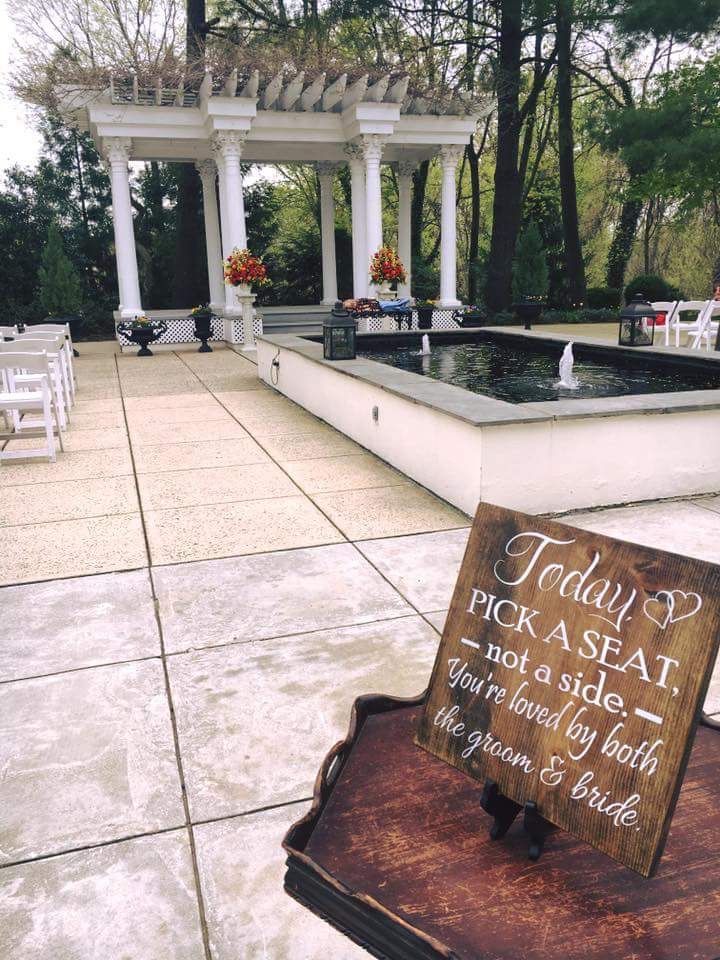 Today,
PICK A SEAT,
- not a side. -
You're loved by both
the groom & bride.